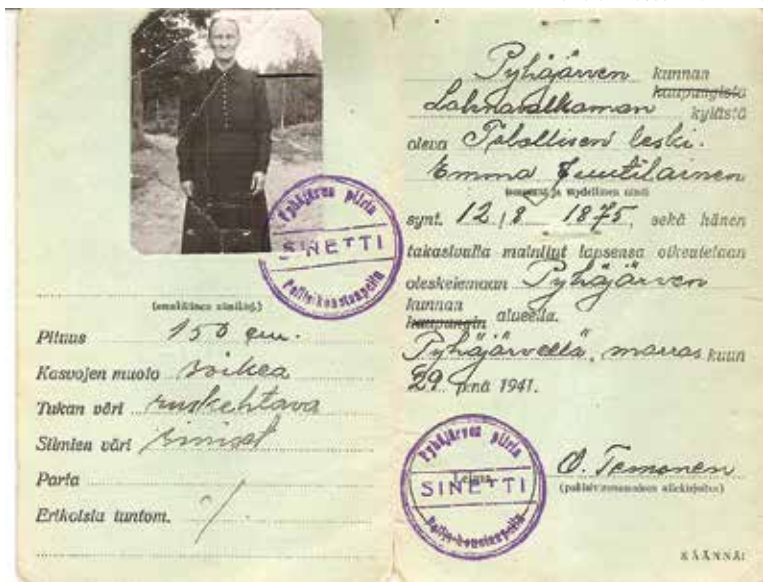 Pyhäjärven piiri
SINETTI
Poliisikonstaapeli
(omakätinen nimikirj.)
Pituus 150 cm.
Kasvojen muoto soikea
Tukan väri ruskehtava
Silmien väri siniset
Parta
Erikoisia tuntom. /
Pyhäjärven kunnan
kaupungista
Lahnavalkaman kylästä
oleva Talollisen leski.
Emma Juutilainen
ja täydellinen nimi
synt. 12/8 1875, sekä hänen
takasivulla mainitut lapsensa oikeutetaan
oleskelemaan Pyhäjärven
kunnan
kaupungin alueella.
Pyhäjärvellä, marras kuun
29 p:nä 1941.
Pyhäjärven piiri
Leima
SINETTI
Poliisikonstaapeli
O. Temonen
KÄÄNNÄ!